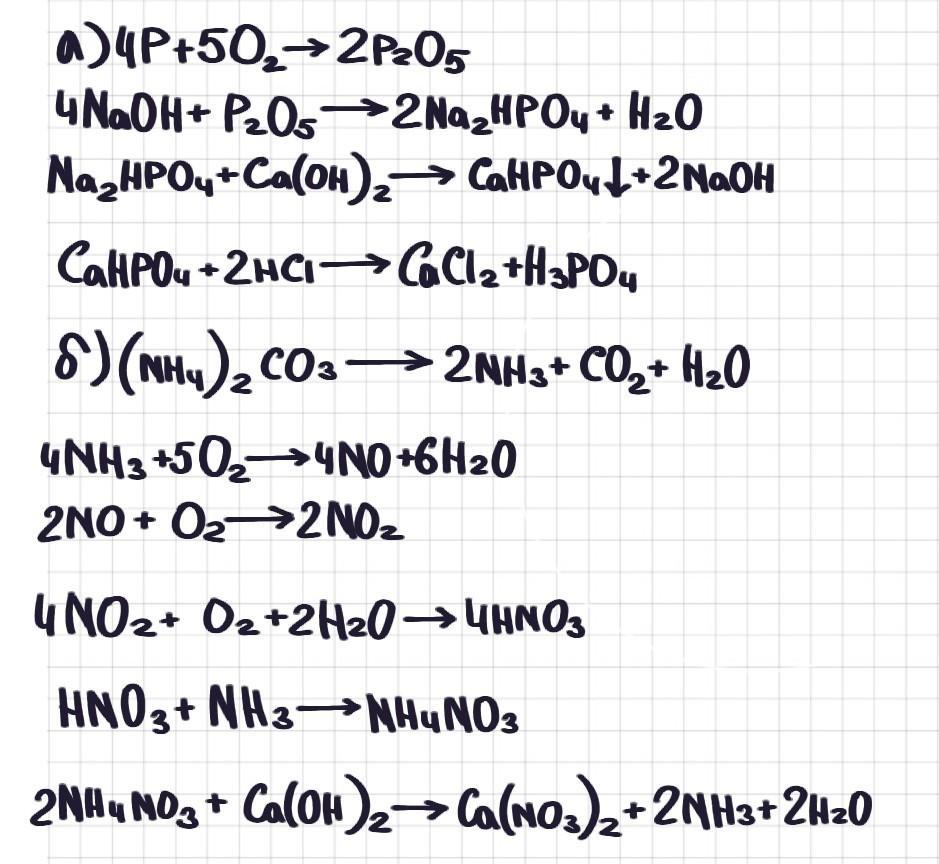 а) 4P + 5O₂ → 2P₂O₅
4NaOH + P₂O₅ → 2Na₂HPO₄ + H₂O
Na₂HPO₄ + Ca(OH)₂ → CaHPO₄↓ + 2NaOH
CaHPO₄ + 2HCl → CaCl₂ + H₃PO₄
б) (NH₄)₂CO₃ → 2NH₃ + CO₂ + H₂O
4NH₃ + 5O₂ → 4NO + 6H₂O
2NO + O₂ → 2NO₂
4NO₂ + O₂ + 2H₂O → 4HNO₃
HNO₃ + NH₃ → NH₄NO₃
2NH₄NO₃ + Ca(OH)₂ → Ca(NO₃)₂ + 2NH₃ + 2H₂O